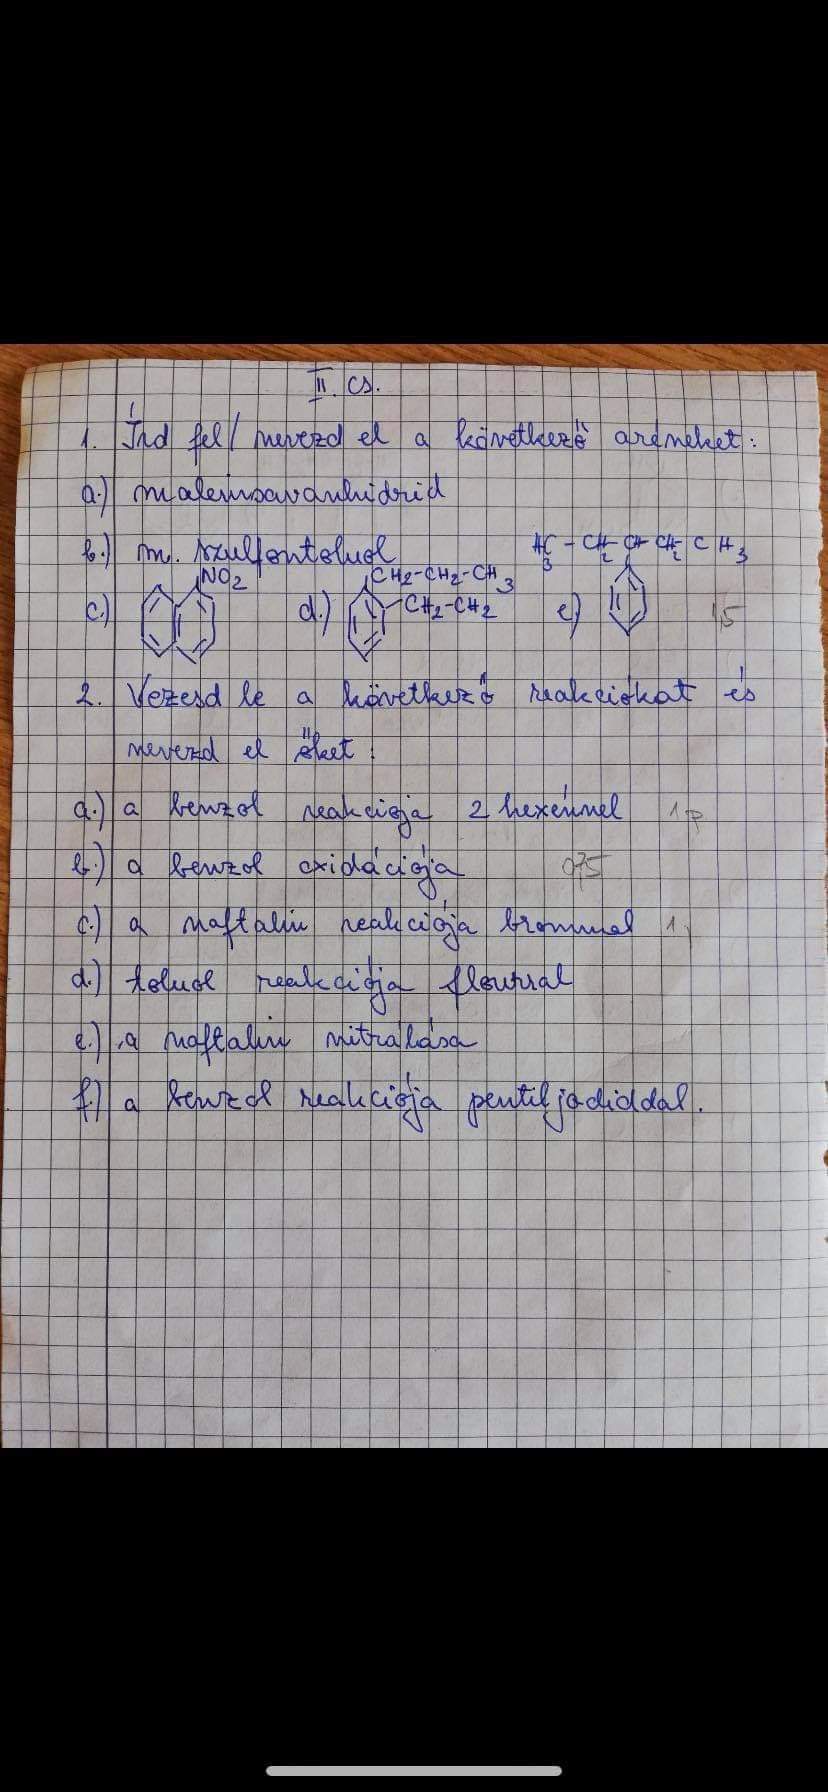 II. cs.
1. Írd fel/ nevezd el a következő aréneket:
a.) maleinsavanhidrid
b.) m. szulfontoluol
H3C - CH2- CH- CH2- CH3
c.) NO2 d.) CH2-CH2-CH3 e.)
CH2-CH2
1,5
2. Vezesd le a következő reakciókat és
nevezd el őket:
a.) a benzol reakcioja 2 hexénnel 1p
b.) a benzol oxidációja 0,75
c.) a naftalin reakciója brommal 1
d.) toluol reakciója flourral
e.) a naftalin nitrálása
f.) a benzol reakciója pentiljodiddal.